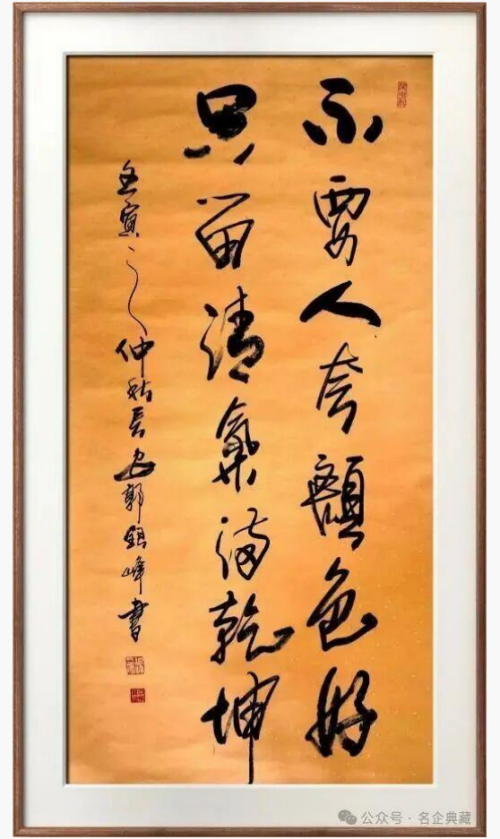 不要人夸顏色好
只留清氣滿乾坤
壬寅之仲秋長安郭峰書
公众号 · 名企典藏